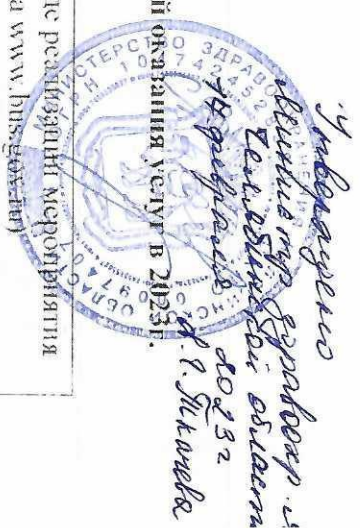 Утверждено
Министр здравоохр.
Челябинской области
14 февраля 2023 г.
Ткачева
МИНИСТЕРСТВО ЗДРАВО
ОБЛАСТ
й оказания услуг в 2023г.
реализации мероприятия
а www. bus.gov.ru)